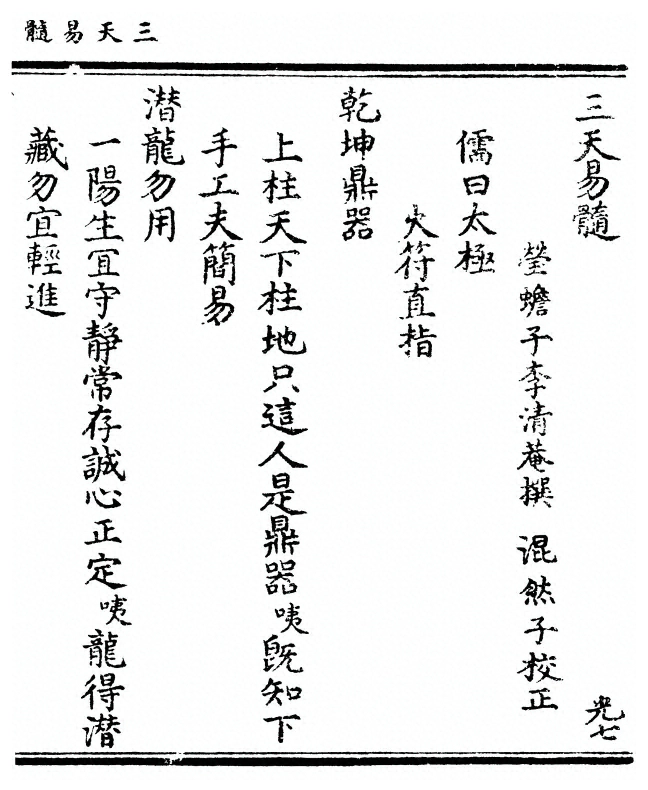 三天易髓
三天易髓
光七
瑩蟾子李清菴撰 混然子校正
儒曰太極
火符直指
乾坤鼎器
上柱天下柱地只這人是鼎器咦旣知下
手工夫簡易
潛龍勿用
一陽生冝守靜常存誠心正定咦龍得潛
藏勿宜輕進